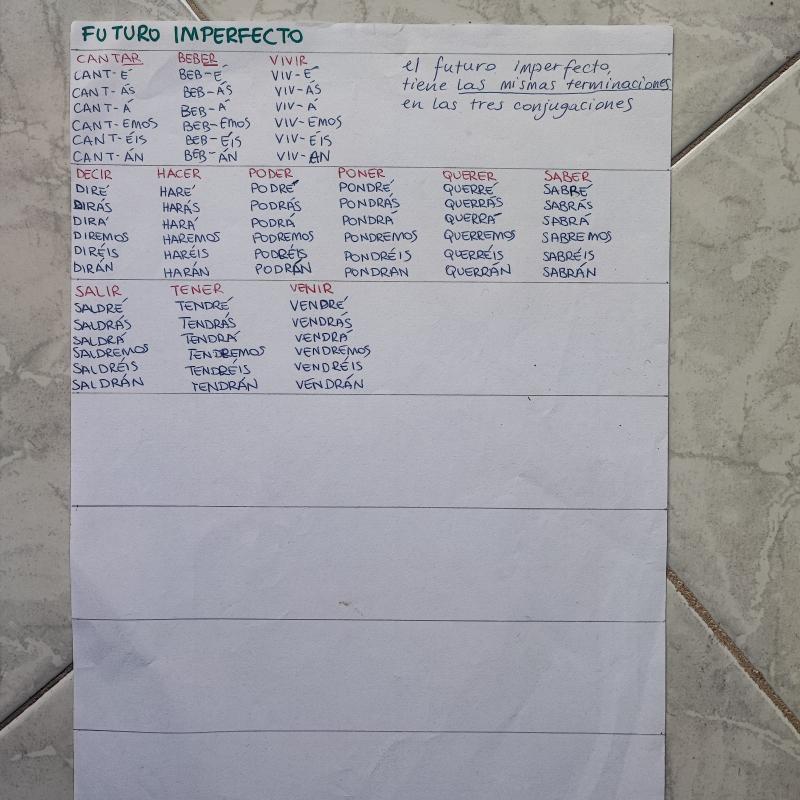 FUTURO IMPERFECTO
CANTAR BEBER VIVIR
CANT-É BEB-É VIV-É
CANT-ÁS BEB-ÁS VIV-ÁS
CANT-Á BEB-Á VIV-Á
CANT-EMOS BEB-EMOS VIV-EMOS
CANT-ÉIS BEB-ÉIS VIV-ÉIS
CANT-ÁN BEB-ÁN VIV-ÁN
el futuro imperfecto,
tiene las mismas terminaciones
en las tres conjugaciones
DECIR HACER PODER PONER QUERER SABER
DIRÉ HARÉ PODRÉ PONDRÉ QUERRÉ SABRÉ
DIRÁS HARÁS PODRÁS PONDRÁS QUERRÁS SABRÁS
DIRÁ HARÁ PODRÁ PONDRÁ QUERRÁ SABRÁ
DIREMOS HAREMOS PODREMOS PONDREMOS QUERREMOS SABREMOS
DIRÉIS HARÉIS PODRÉIS PONDRÉIS QUERRÉIS SABRÉIS
DIRÁN HARÁN PODRÁN PONDRAN QUERRÁN SABRÁN
SALIR TENER VENIR
SALDRÉ TENDRÉ VENDRÉ
SALDRÁS TENDRÁS VENDRÁS
SALDRÁ TENDRÁ VENDRÁ
SALDREMOS TENDREMOS VENDREMOS
SALDRÉIS TENDRÉIS VENDRÉIS
SALDRÁN TENDRÁN VENDRÁN